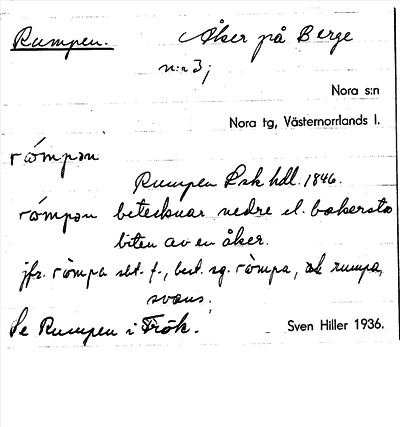 Rumpen.
Åker på Berge
n:o 3;
Nora s:n
Nora tg, Västernorrlands l.
rómpən
Rumpen Lsk hdl. 1846.
rómpən betecknar nedre el. bakersta
biten av en åker.
jfr. ròmpa sbt. f., best. sg. ròmpa, rumpa,
svans.
Se Rumpen i Frök.
Sven Hiller 1936.